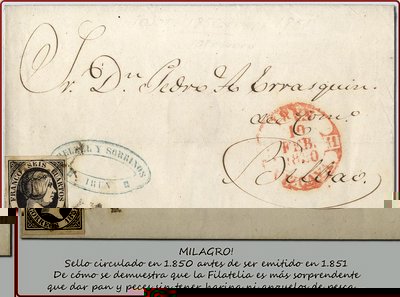 Sr. Dn. Pedro A. Errasquin.
del Com.º
Bilbao.
Y SOBRINOS
IRUN
10
FEB.
1850
FRANCO SEIS CUARTOS
MILAGRO!
Sello circulado en 1.850 antes de ser emitido en 1.851
De cómo se demuestra que la Filatelia es más sorprendente
que dar pan y peces sin tener harina ni anzuelos de pesca.